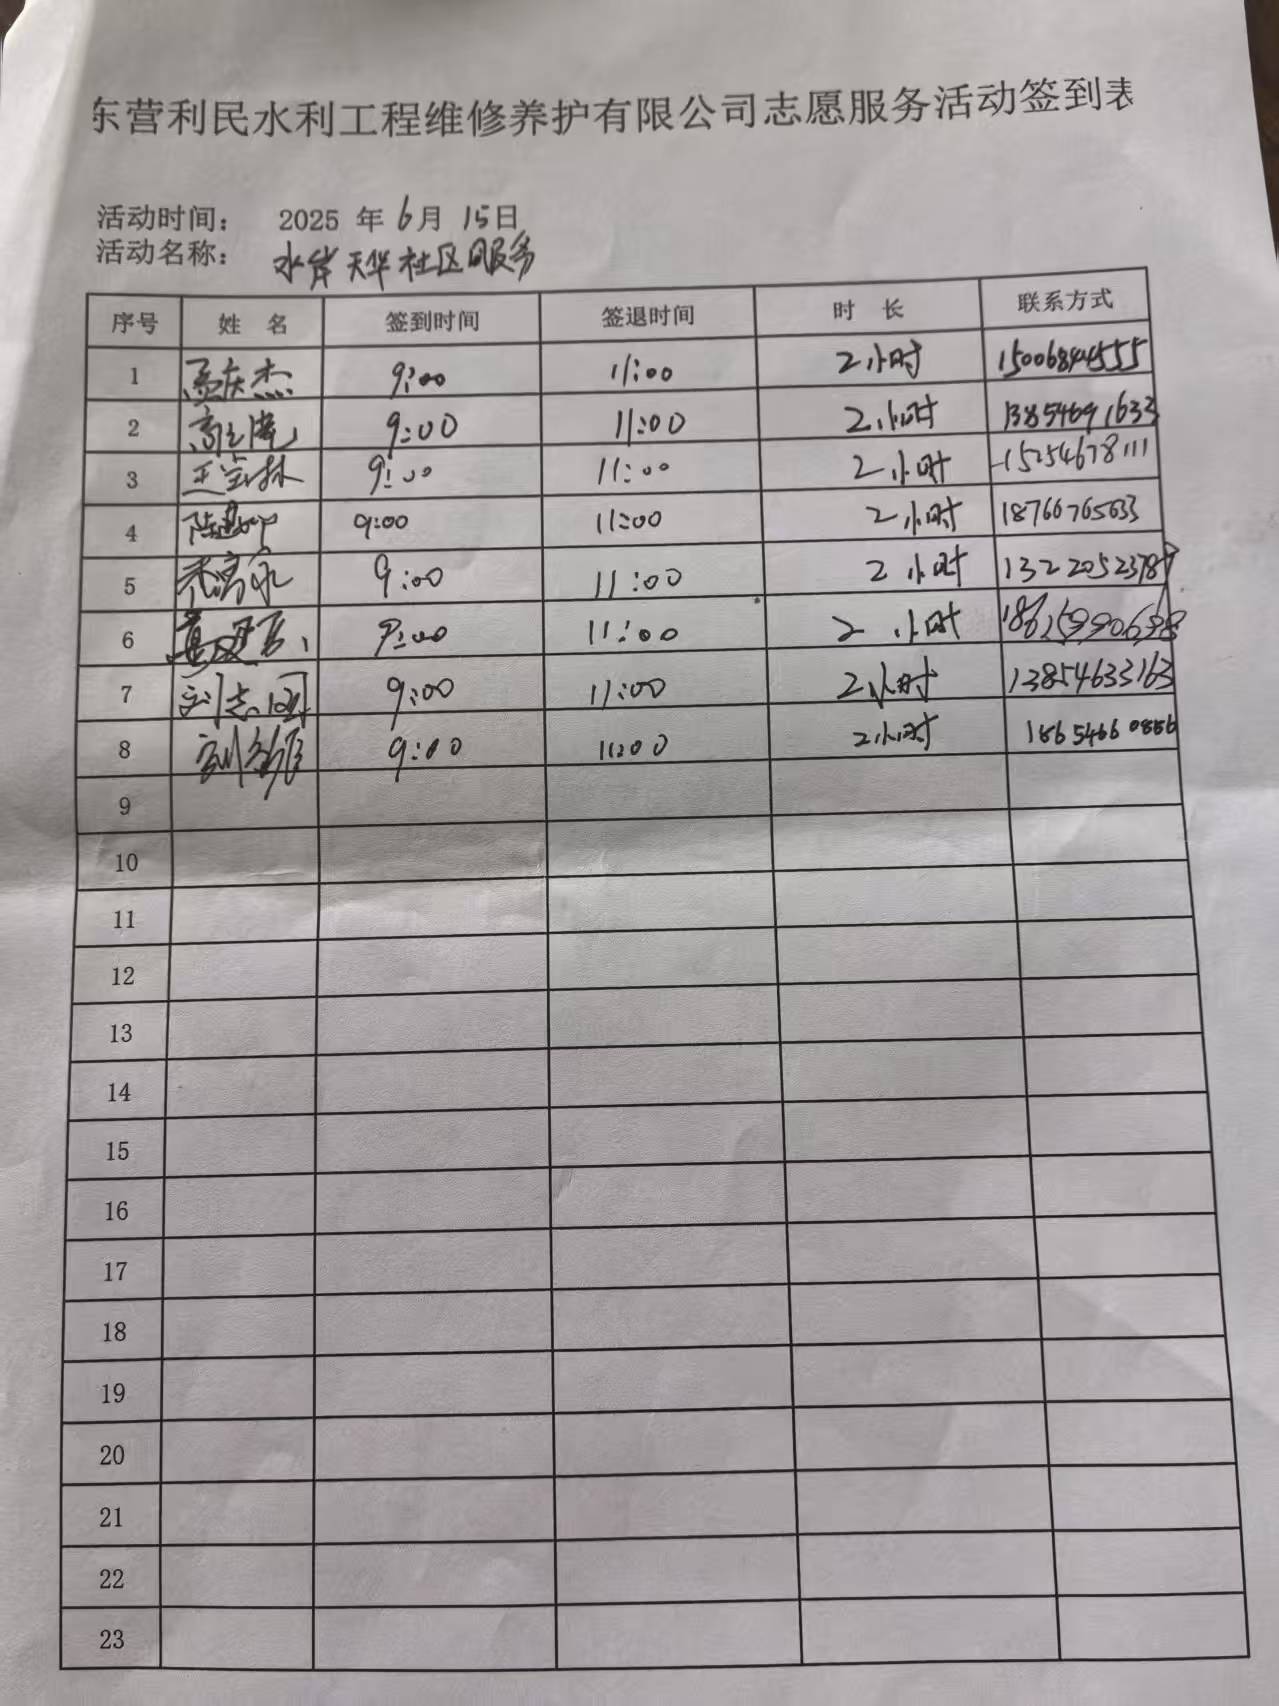 东营利民水利工程维修养护有限公司志愿服务活动签到表
活动时间： 2025 年 6月 15日
活动名称： 水岸天华社区服务
序号 姓 名 签到时间 签退时间 时 长 联系方式
1 孟庆杰 9:00 11:00 2小时 15006844555
2 9:00 11:00 2小时 13854691633
3 王宝林 9:00 11:00 2小时 15254678111
4 9:00 11:00 2小时 18766765633
5 9:00 11:00 2小时
6 9:00 11:00 2小时
7 刘志国 9:00 11:00 2小时 13854633163
8 9:00 11:00 2小时 18654660886
9
10
11
12
13
14
15
16
17
18
19
20
21
22
23